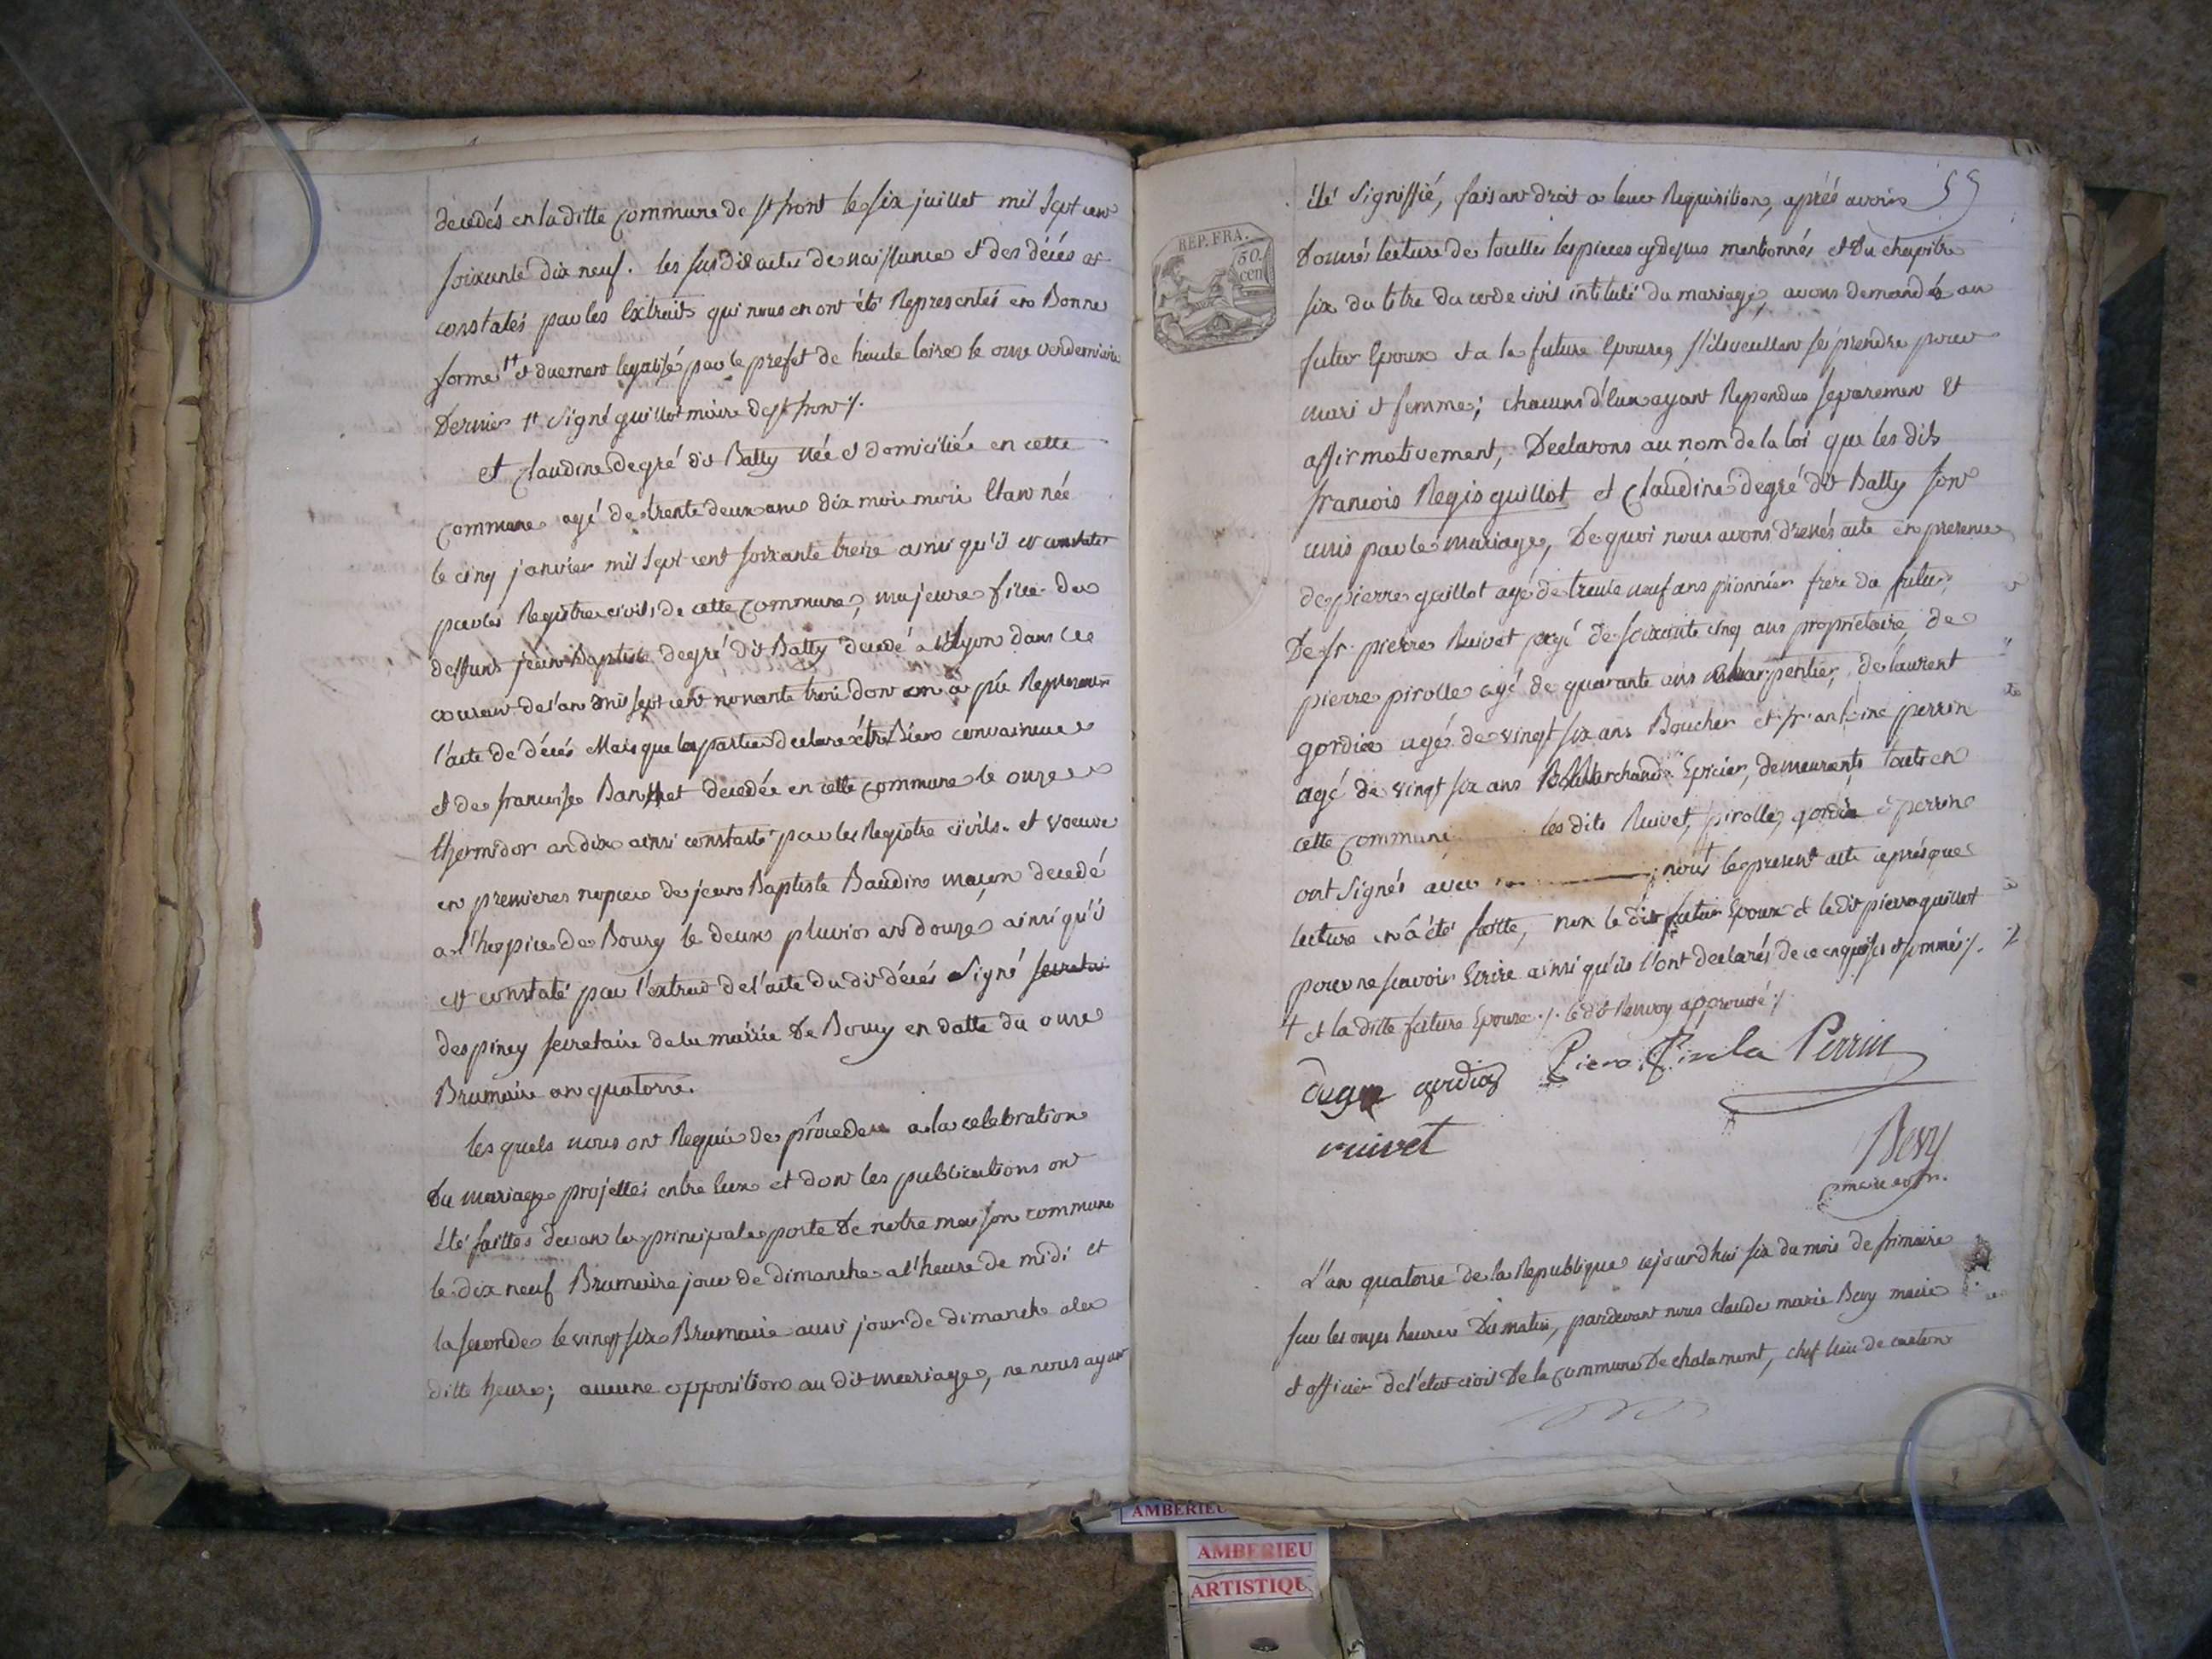 decedés en laditte commune de st front le six juillet mil sept cent
soixante dix neuf. les susdit actes de naissance et des décés est
constatés par les Extraits qui nous en ont été Representés en Bonne
forme et duement legalisé par le prefet de haute loire le onze vendemiaire
Dernier signé guillot maire de st front ./.
et Claudine degré dit Batty née et domiciliée en cette
Commune agé de trente deux ans dix mois Etant née
le cinq janvier mil sept cent soixante treize ainsi qu'il est constaté
par les Registre civils de cette Commune, majeure fille de
deffunt jean Baptiste degré dit Batty decedé a Lyon dans le
courant de l'an mil sept cent nonante trois dont on a pû Representer
l'acte de décés Mais que la partie declare être Bien convaincue
et de francoise Banchet decedée en cette commune le onze
thermidor an dix ainsi constaté par les Registre civils. et veuve
en premieres nopces de jean Baptiste Baudin maçon decedé
a l'hospice de Bourg le deux pluvios an douze ainsi qu'il
est constaté par l'extrait de l'acte du dit décés Signé secretai
despiney secretaire de la mairie De Bourg en datte du onze
Brumaire an quatorze.
les quels nous ont Requis de procéder a la celebration
Du mariage projetté entre Eux et dont les publications ont
été faittes devant la principale porte De notre maison commune
le dix neuf Brumaire jour de dimanche a l'heure de midi et
la seconde le vingt six Brumaire aussi jour de dimanche a la
ditte heure; aucune opposition au dit mariage, ne nous ayant
55
été signiffié, faisant droit a leur Requisition, aprés avoir
REP. FRA.
50.
cen
Donnés lecture de touttes les pieces cy dessus mentionnés et Du chapitre
six du titre du code civil intitulé du mariage, avons demandés au
futur Epoux et a la future Epouse, s'ils veullent se prendre pour
mari et femme; chacuns d'Eux ayant Repondus separement Et
affirmativement, Declarons au nom de la loi que les dits
francois Regis guillot et Claudine degré dit Batty sont
unis par le mariage, De quoi nous avons dressés acte en presence
de pierre guillot agé de trente neuf ans pionnier frere du futur,
De sr. pierre Ruivet agé de soixante cinq ans proprietaire, de
pierre pirolle agé de quarante ans charpentier, de laurent
gordiat agé de vingt six ans Boucher et sr. antoine perrin
agé de vingt six ans Marchand Epicier, demeurants touts en
cette commune les dits Ruivet, pirolle, gordia et perrin
ont signés avec nous le present acte aprés que
lecture en a été faitte, non le dit futur Epoux et le dit pierre guillot
pour ne scavoir Ecrire ainsi qu'ils l'ont declarés de ce enquis et sommés ./.
+ et la ditte future Epouse ./. le dit Renvoy approuvé ./.
degre gordiat Piero Pirola Perrin
ruivet
Bevy
maire
L'an quatorze de la Republique aujourdhui six du mois de frimaire
sur les onzes heures Du matin, pardevant nous claude marie Bevy maire
et officier de l'etat civil De la commune De chalamont, chef lieu de canton
AMBERIEU
AMBERIEU
ARTISTIQU